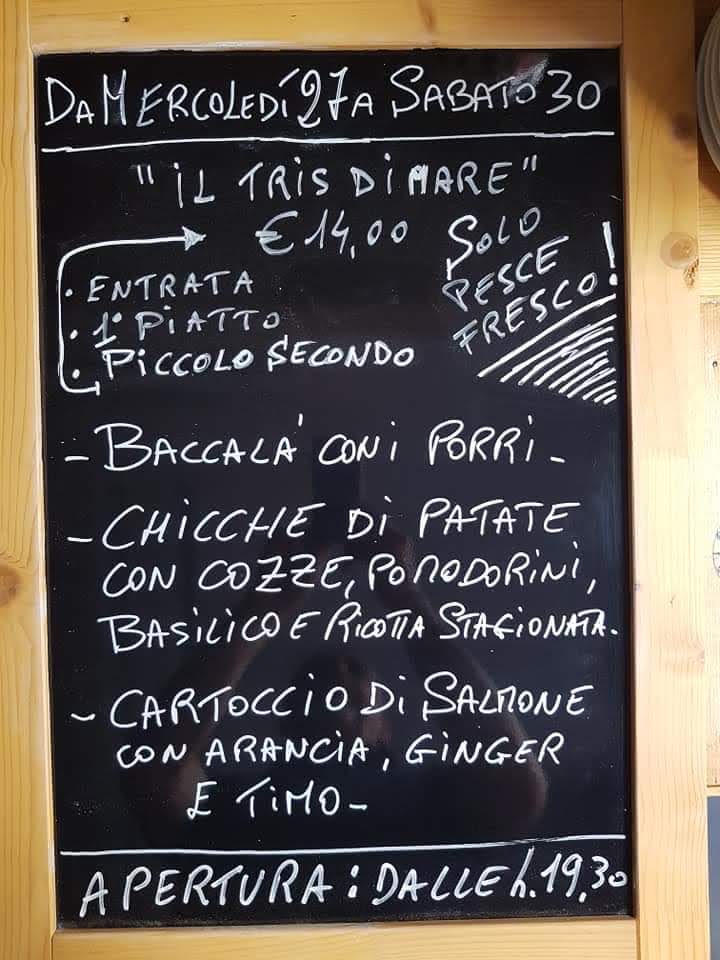 DA MERCOLEDÍ 27 A SABATO 30
"IL TRIS DI MARE"
€ 14,00
SOLO
PESCE
FRESCO!
• ENTRATA
• 1° PIATTO
• PICCOLO SECONDO
- BACCALA' CON I PORRI -
- CHICCHE DI PATATE
CON COZZE, POMODORINI,
BASILICO E RICOTTA STAGIONATA.
- CARTOCCIO DI SALMONE
CON ARANCIA, GINGER
E TIMO -
APERTURA: DALLE h. 19,30